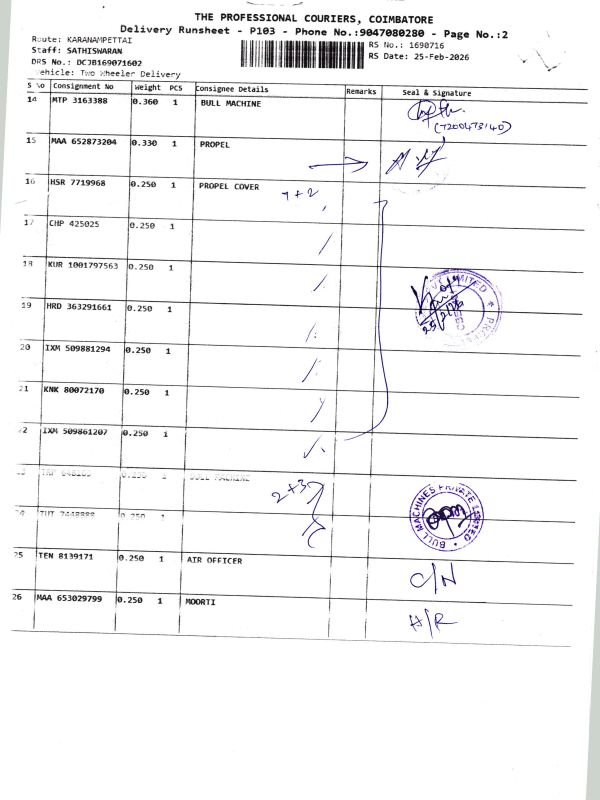 THE PROFESSIONAL COURIERS, COIMBATORE
Delivery Runsheet - P103 - Phone No.:9047080280 - Page No.:2
Route: KARANAMPETTAI
RS No.: 1690716
Staff: SATHISWARAN
RS Date: 25-Feb-2026
DRS No.: DCJB169071602
Vehicle: Two Wheeler Delivery
S No Consignment No Weight PCS Consignee Details Remarks Seal & Signature
14 MTP 3163388 0.360 1 BULL MACHINE
(7200473140)
15 MAA 652873204 0.330 1 PROPEL
16 HSR 7719968 0.250 1 PROPEL COVER 7+2
17 CHP 425025 0.250 1
18 KUR 1001797563 0.250 1
19 HRD 363291661 0.250 1
20 IXM 509881294 0.250 1
21 KNK 80072170 0.250 1
22 IXM 509861207 0.250 1
BULL MACHINE 2+3
BULL MACHINES PRIVATE LIMITED
24 TUT 7448888 0.250 1
25 TEN 8139171 0.250 1 AIR OFFICER C/N
26 MAA 653029799 0.250 1 MOORTI H/R